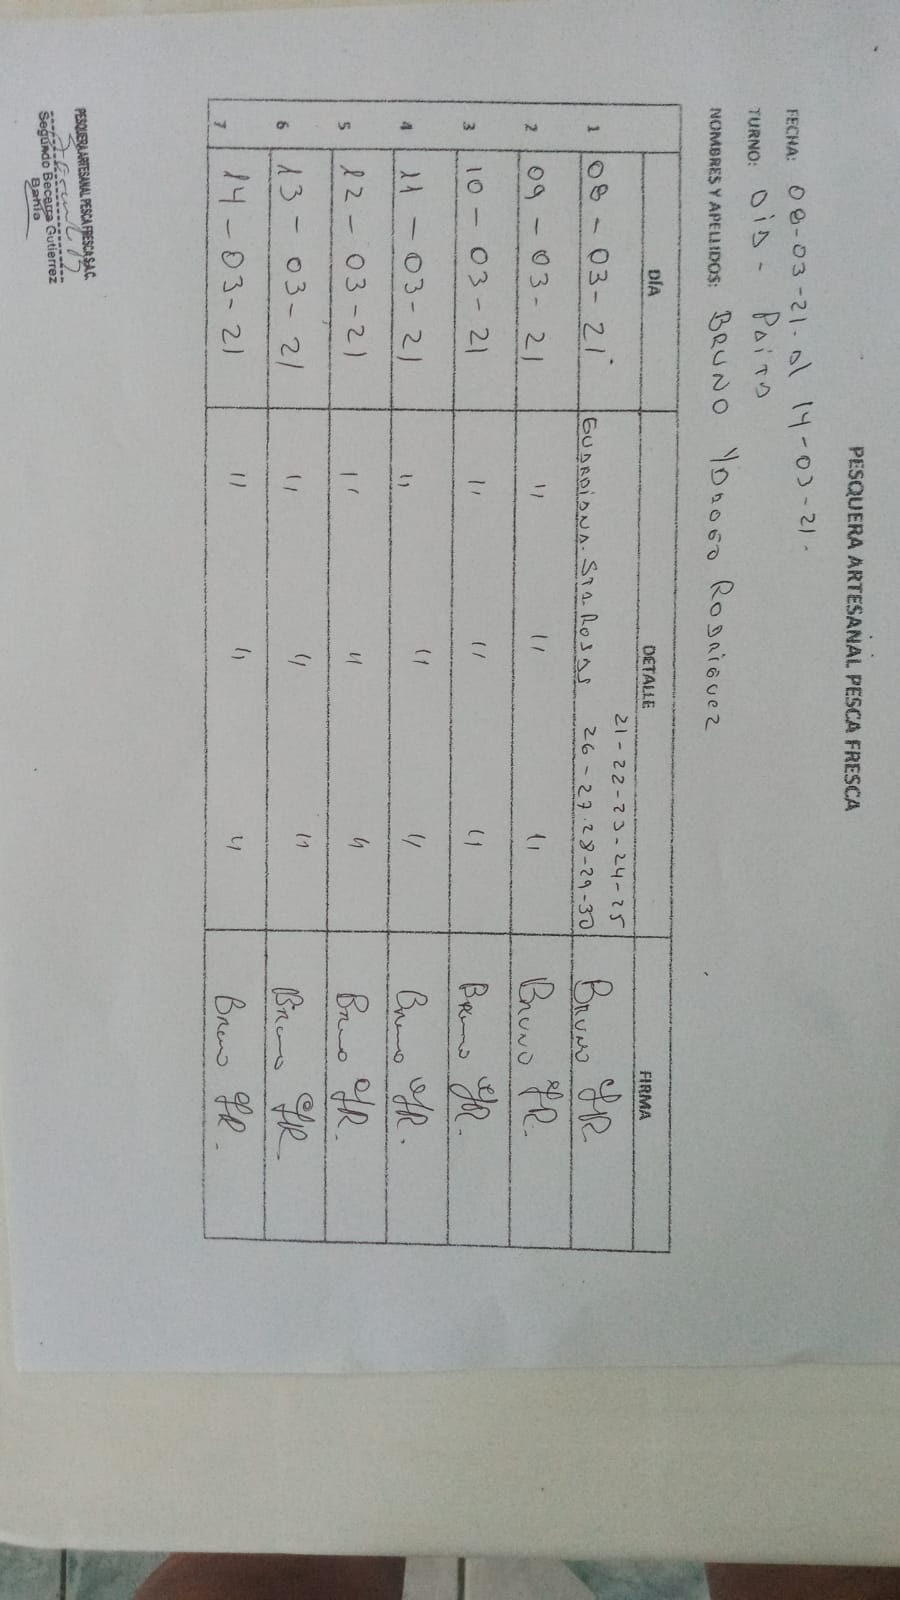 PESQUERA ARTESANAL PESCA FRESCA
FECHA: 08-03-21. al 14-03-21.
TURNO: DIA - PAITA
NOMBRES Y APELLIDOS: BRUNO RODRIGUEZ
DÍA DETALLE FIRMA
21-22-23-24-25
1 08-03-21 GUARDIANA. STA. ROSAS 26-27-28-29-30 Bruno YR
2 09-03-21 " " " Bruno YR.
3 10-03-21 " " " Bruno YR.
4 11-03-21 " " " Bruno YR.
5 12-03-21 " " " Bruno YR.
6 13-03-21 " " " Bruno YR.
7 14-03-21 " " " Bruno YR.
PESQUERA ARTESANAL PESCA FRESCA S.A.C.
Segundo Becerra Gutierrez
Bahía